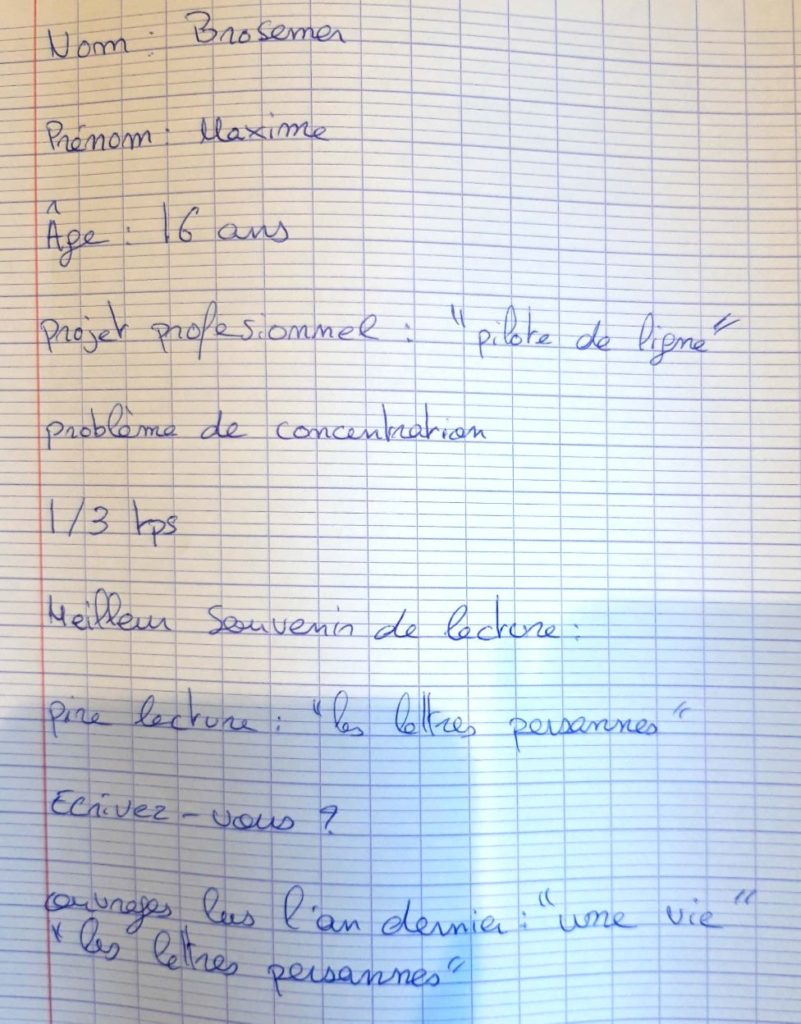 Nom : Brosemer
Prénom : Maxime
Âge : 16 ans
projet profesionnel : "pilote de ligne"
problème de concentration
1/3 tps
Meilleur souvenir de lecture :
pire lecture : "les lettres persannes"
Ecrivez-vous ?
ouvrages lus l'an dernier : "une vie"
"les lettres persannes"